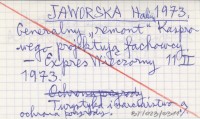 JAWORSKA Hal. 1973.
Generalny „remont" Kaspro-
wego projektują fachowcy.
— Expres Wieczorny 11 II
1973.
Ochrona przyrody
Turystyka i narciarstwo a
ochrona przyrody.